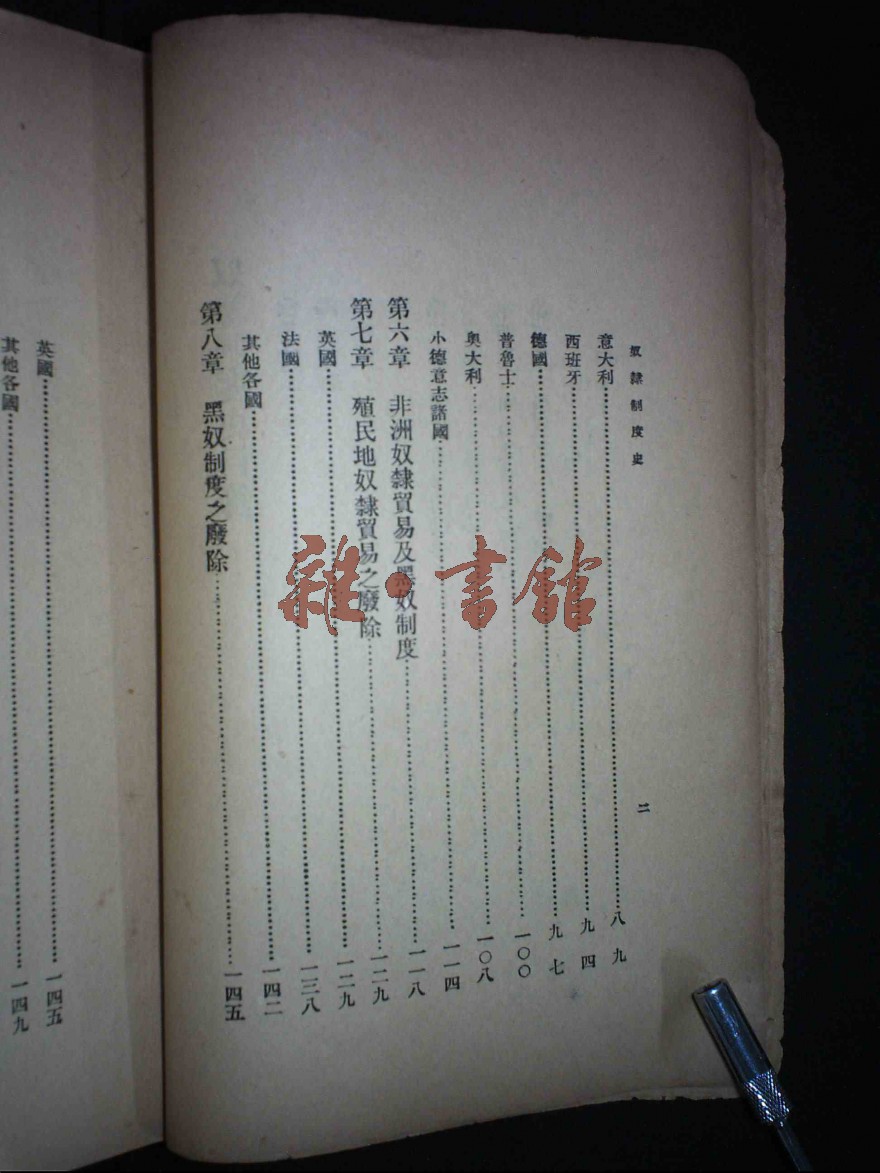 奴隸制度史
二
意大利……八九
西班牙……九四
德國……九七
普魯士……一〇〇
奧大利……一〇八
小德意志諸國……一一四
第六章 非洲奴隸貿易及黑奴制度……一一八
第七章 殖民地奴隸貿易之廢除……一二九
英國……一二九
法國……一三八
其他各國……一四二
第八章 黑奴制度之廢除……一四五
英國……一四五
其他各國……一四九
雜·書館